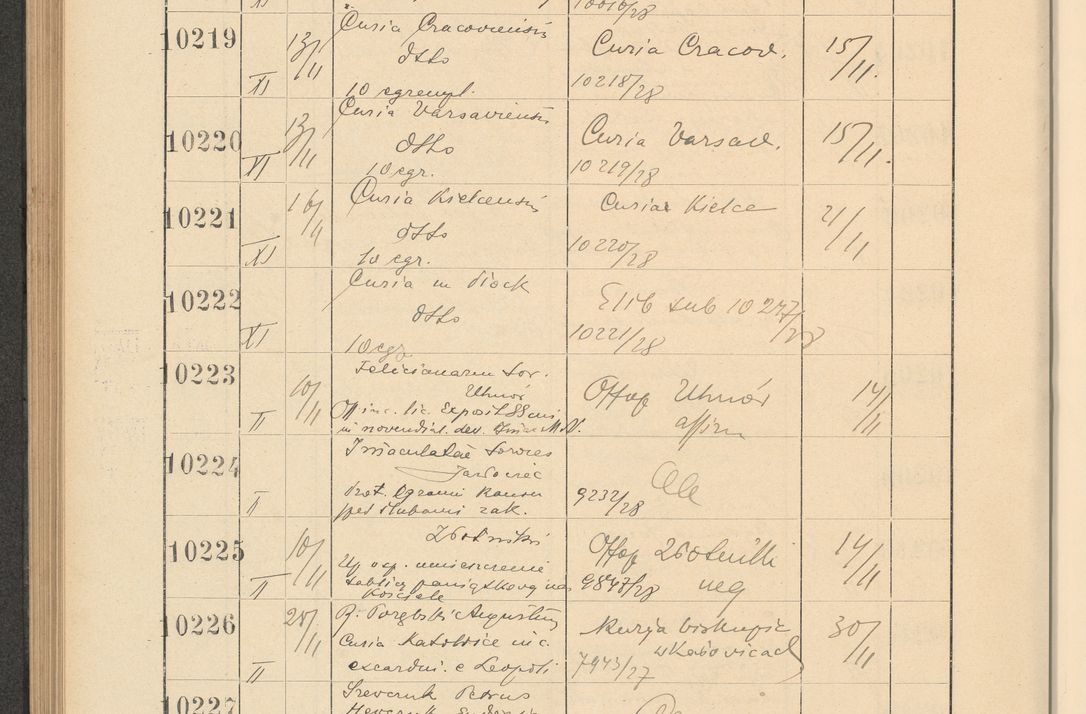 XI 10010/28
10219 XI 13/11 Curia Cracoviensis Curia Cracov. 15/11.
dtto
10 egzempl. 10218/28
10220 XI 13/11 Curia Varsaviensis Curia Varsav. 15/11.
dtto
10 egz. 10219/28
10221 XI 16/11 Curia Kielcensis Curia Kielce 21/11
dtto
10 egz. 10220/28
10222 XI Curia in Płock sub 10247/28
dtto
10 egz 10221/28
10223 II 10/11 Felicianarum Sor. 14/11
Uhnów Uhnów
lic. Exposit. SSmi affirm
in novendial. dev.
10224 II Immaculatae Sorores
Jarosławiec
9232/28
przed ślubami zak.
10225 II 10/11 14/11
umieszczenie
tablicy pamiątkowej na 9847/28 neg
kościele
10226 II 20/11 R. Porębski Augustin Kurja biskupia 30/11
Curia Katowice w Katowicach
excardin. e Leopoli 7943/27
10227 Szewczuk Petrus